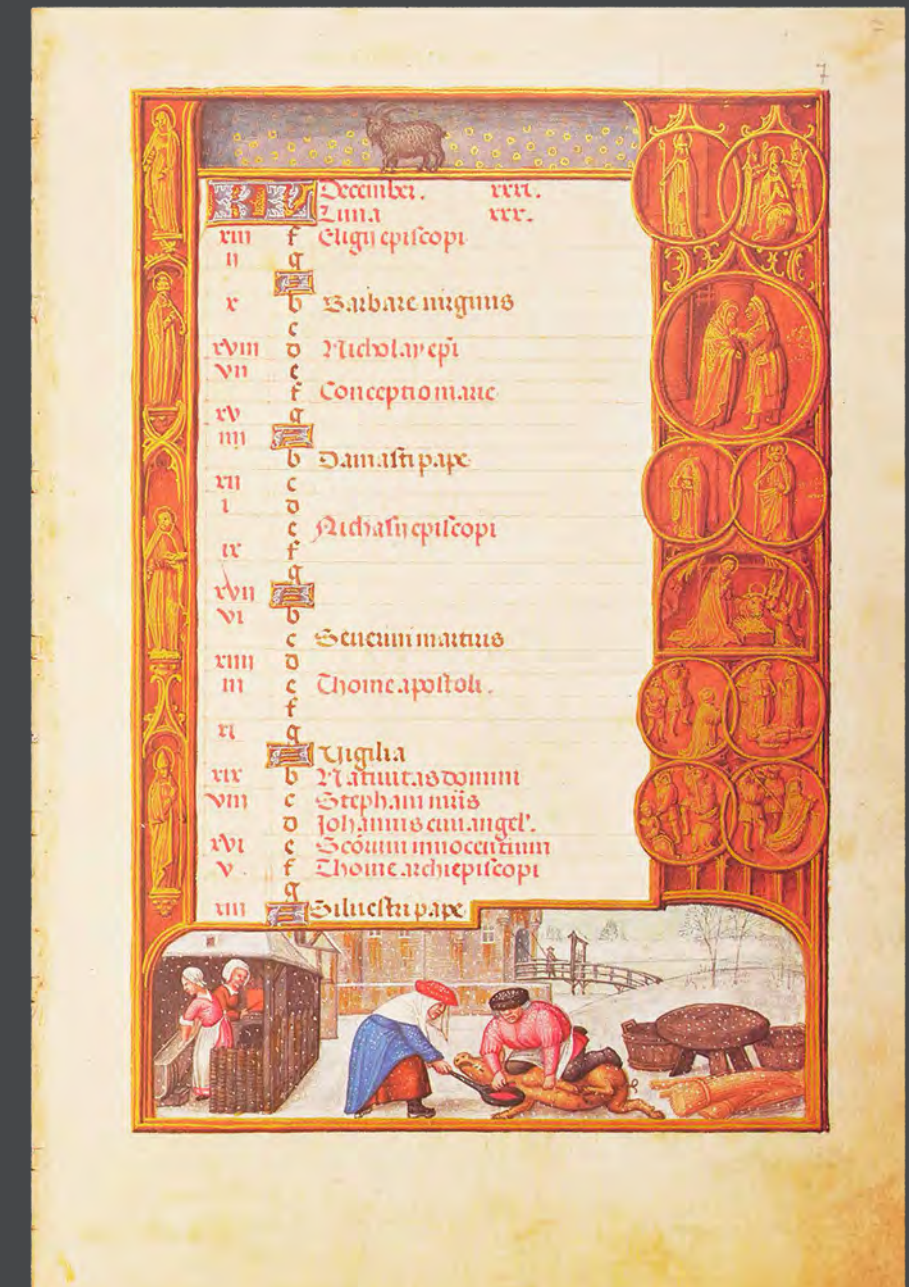 7
KL December. xxxi.
Luna xxx.
xiii f Eligii episcopi
ii g
A
x b Barbare virginis
c
xviii d Nicholay epi
vii e
f Conceptio marie
xv g
iiii A
b Damasti pape
xii c
i d
e Nichasii episcopi
ix f
g
xvii A
vi b
c Severini martiris
xiiii d
iii e Thome apostoli.
f
xi g
A Vigilia
xix b Nativitas domini
viii c Stephani mris
d Johannis euuangel'.
xvi e Scorum innocentium
v f Thome archiepiscopi
g
xiii A Silvestri pape